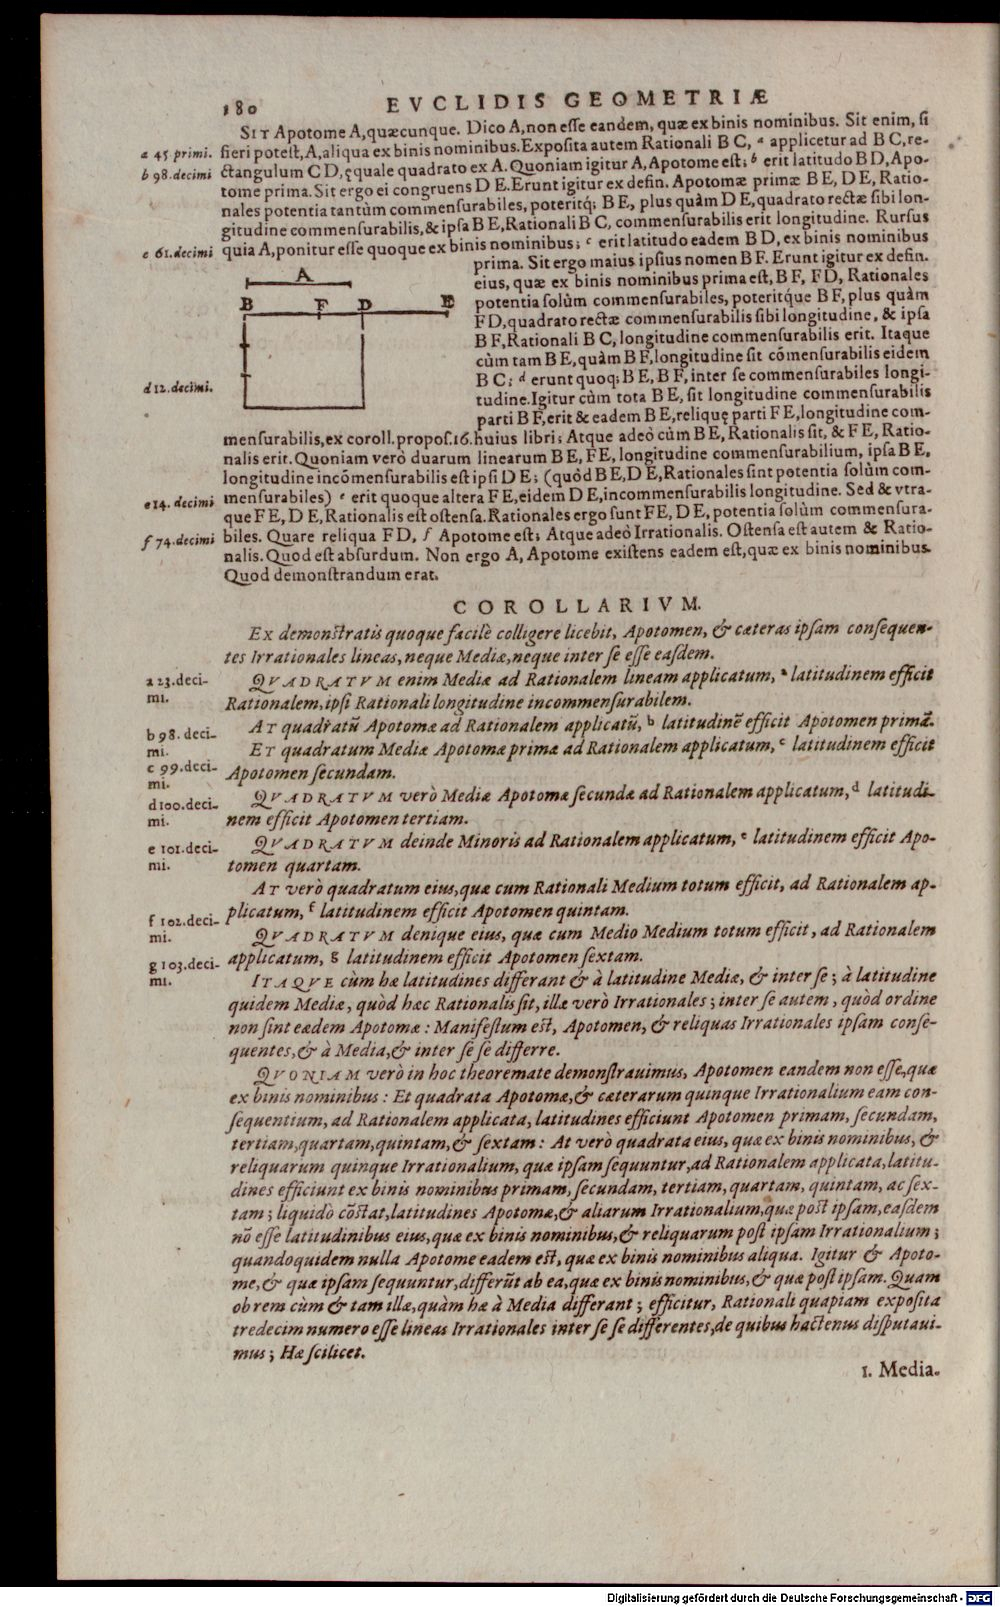 180 EVCLIDIS GEOMETRIÆ
SIT Apotome A, quæcunque. Dico A, non esse eandem, quæ ex binis nominibus. Sit enim, si
a 45 primi. fieri potest, A, aliqua ex binis nominibus. Exposita autem Rationali B C, a applicetur ad B C, re-
b 98. decimi ctangulum C D, ęquale quadrato ex A. Quoniam igitur A, Apotome est; b erit latitudo B D, Apo-
tome prima. Sit ergo ei congruens D E. Erunt igitur ex defin. Apotomæ primæ B E, D E, Ratio-
nales potentia tantùm commensurabiles, poteritq; B E, plus quàm D E, quadrato rectæ sibi lon-
gitudine commensurabilis, & ipsa B E, Rationali B C, commensurabilis erit longitudine. Rursus
c 61. decimi quia A, ponitur esse quoque ex binis nominibus; c erit latitudo eadem B D, ex binis nominibus
prima. Sit ergo maius ipsius nomen B F. Erunt igitur ex defin.
eius, quæ ex binis nominibus prima est, B F, F D, Rationales
potentia solùm commensurabiles, poteritq́ue B F, plus quàm
F D, quadrato rectæ commensurabilis sibi longitudine, & ipsa
B F, Rationali B C, longitudine commensurabilis erit. Itaque
cùm tam B E, quàm B F, longitudine sit cōmensurabilis eidem
d 12. decimi. B C; d erunt quoq; B E, B F, inter se commensurabiles longi-
tudine. Igitur cùm tota B E, sit longitudine commensurabilis
parti B F, erit & eadem B E, reliquę parti F E, longitudine com-
A
B F D E
mensurabilis, ex coroll. propos. 16. huius libri; Atque adeò cùm B E, Rationalis sit, & F E, Ratio-
nalis erit. Quoniam verò duarum linearum B E, F E, longitudine commensurabilium, ipsa B E,
longitudine incōmensurabilis est ipsi D E; (quòd B E, D E, Rationales sint potentia solùm com-
e 14. decimi mensurabiles) e erit quoque altera F E, eidem D E, incommensurabilis longitudine. Sed & vtra-
que F E, D E, Rationalis est ostensa. Rationales ergo sunt F E, D E, potentia solùm commensura-
f 74. decimi biles. Quare reliqua F D, f Apotome est; Atque adeò Irrationalis. Ostensa est autem & Ratio-
nalis. Quod est absurdum. Non ergo A, Apotome existens eadem est, quæ ex binis nominibus.
Quod demonstrandum erat.
COROLLARIVM.
Ex demonstratis quoque facilè colligere licebit, Apotomen, & cæteras ipsam consequen-
tes Irrationales lineas, neque Mediæ, neque inter se esse easdem.
a 23. deci-
mi.
QVADRATVM enim Mediæ ad Rationalem lineam applicatum, a latitudinem efficit
Rationalem, ipsi Rationali longitudine incommensurabilem.
b 98. deci-
mi.
AT quadratū Apotomæ ad Rationalem applicatū, b latitudinē efficit Apotomen primā.
c 99. deci-
mi.
ET quadratum Mediæ Apotomæ primæ ad Rationalem applicatum, c latitudinem efficit
Apotomen secundam.
d 100. deci-
mi.
QVADRATVM verò Mediæ Apotomæ secundæ ad Rationalem applicatum, d latitudi-
nem efficit Apotomen tertiam.
e 101. deci-
mi.
QVADRATVM deinde Minoris ad Rationalem applicatum, e latitudinem efficit Apo-
tomen quartam.
AT verò quadratum eius, quæ cum Rationali Medium totum efficit, ad Rationalem ap-
f 102. deci-
mi.
plicatum, f latitudinem efficit Apotomen quintam.
QVADRATVM denique eius, quæ cum Medio Medium totum efficit, ad Rationalem
g 103. deci-
mi.
applicatum, g latitudinem efficit Apotomen sextam.
ITAQVE cùm hæ latitudines differant & à latitudine Mediæ, & inter se; à latitudine
quidem Mediæ, quòd hæc Rationalis sit, illæ verò Irrationales; inter se autem, quòd ordine
non sint eædem Apotomæ: Manifestum est, Apotomen, & reliquas Irrationales ipsam conse-
quentes, & à Media, & inter se se differre.
QVONIAM verò in hoc theoremate demonstrauimus, Apotomen eandem non esse, quæ
ex binis nominibus: Et quadrata Apotomæ, & cæterarum quinque Irrationalium eam con-
sequentium, ad Rationalem applicata, latitudines efficiunt Apotomen primam, secundam,
tertiam, quartam, quintam, & sextam: At verò quadrata eius, quæ ex binis nominibus, &
reliquarum quinque Irrationalium, quæ ipsam sequuntur, ad Rationalem applicata, latitu-
dines efficiunt ex binis nominibus primam, secundam, tertiam, quartam, quintam, ac sex-
tam; liquidò cōstat, latitudines Apotomæ, & aliarum Irrationalium, quæ post ipsam, easdem
nō esse latitudinibus eius, quæ ex binis nominibus, & reliquarum post ipsam Irrationalium;
quandoquidem nulla Apotome eadem est, quæ ex binis nominibus aliqua. Igitur & Apoto-
me, & quæ ipsam sequuntur, differūt ab ea, quæ ex binis nominibus, & quæ post ipsam. Quam
ob rem cùm & tam illæ, quàm hæ à Media differant; efficitur, Rationali quapiam exposita
tredecim numero esse lineas Irrationales inter se se differentes, de quibus hactenus disputaui-
mus; Hæ scilicet.
1. Media.
Digitalisierung gefördert durch die Deutsche Forschungsgemeinschaft - DFG